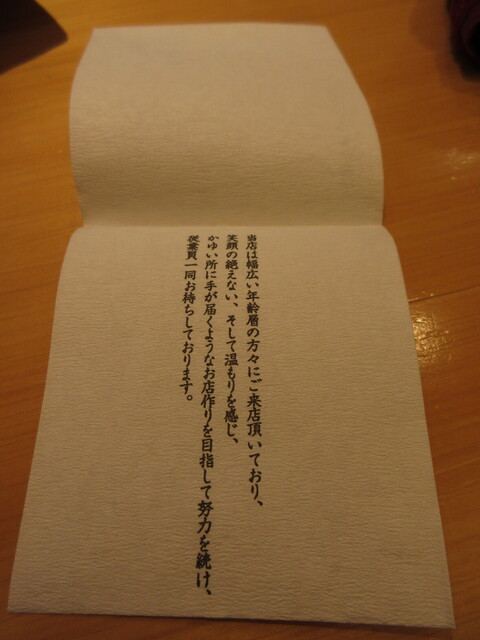 当店は幅広い年齢層の方々にご来店頂いており、
笑顔の絶えない、そして温もりを感じ、
かゆい所に手が届くようなお店作りを目指して努力を続け、
従業員一同お待ちしております。